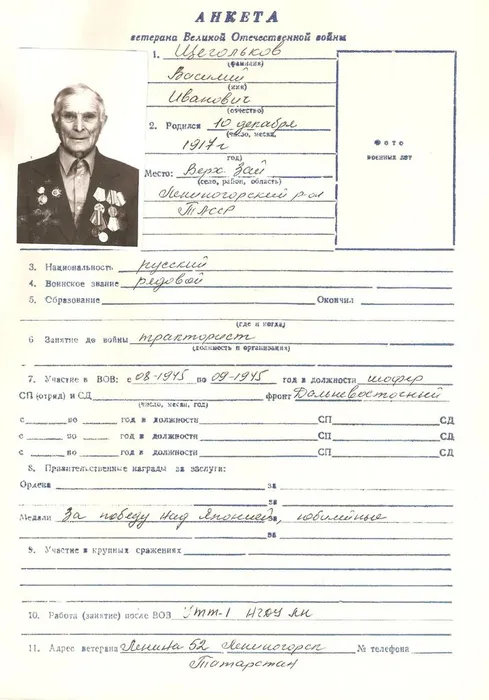 АНКЕТА
ветерана Великой Отечественной войны
1. Щегольков
(фамилия)
Василий
(имя)
Иванович
(отчество)
2. Родился 10 декабря
(число, месяц,
1917 г
год)
Место: Верх. Зай
(село, район, область)
Лениногорский р-он
ТАССР
Фото
военных лет
3. Национальность русский
4. Воинское звание рядовой
5. Образование Окончил
(где и когда)
6 Занятие до войны тракторист
(должность и организация)
7. Участие в ВОВ: с 08-1945 по 09-1945 год в должности шофер
СП (отряд) и СД фронт Дальневосточный
(число, месяц, год)
с по год в должности СП СД
с по год в должности СП СД
с по год в должности СП СД
8. Правительственные награды за заслуги:
Ордена за
за
Медали За победу над Японией, юбилейные
за
9. Участие в крупных сражениях
10. Работа (занятие) после ВОВ УТТ-1 НГДУ ЛН
11. Адрес ветерана Ленина 52 Лениногорск № телефона
Татарстан